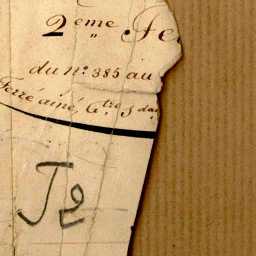 2 eme Fe
du n.º 385 au
Ferré ainé, G.tre s da
J2